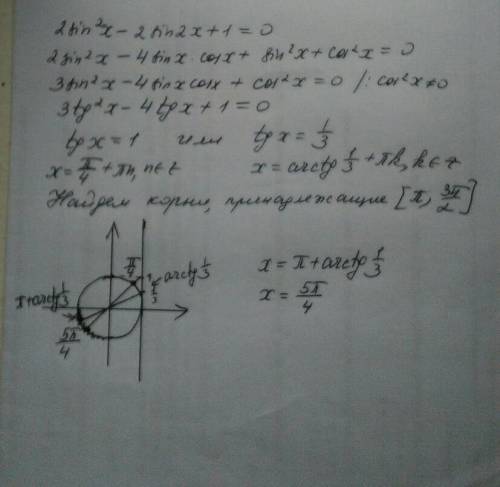 2sin²x - 2sin2x + 1 = 0
2sin²x - 4sinx·cosx + sin²x + cos²x = 0
3sin²x - 4sinxcosx + cos²x = 0 /: cos²x≠0
3tg²x - 4tgx + 1 = 0
tgx = 1 или tgx = 1/3
x = π/4 + πn, n∈Z x = arctg 1/3 + πk, k∈Z
Найдем корни, принадлежащие [π; 3π/2]
π/4 1 arctg 1/3
π+arctg 1/3 1/3
5π/4
x = π + arctg 1/3
x = 5π/4